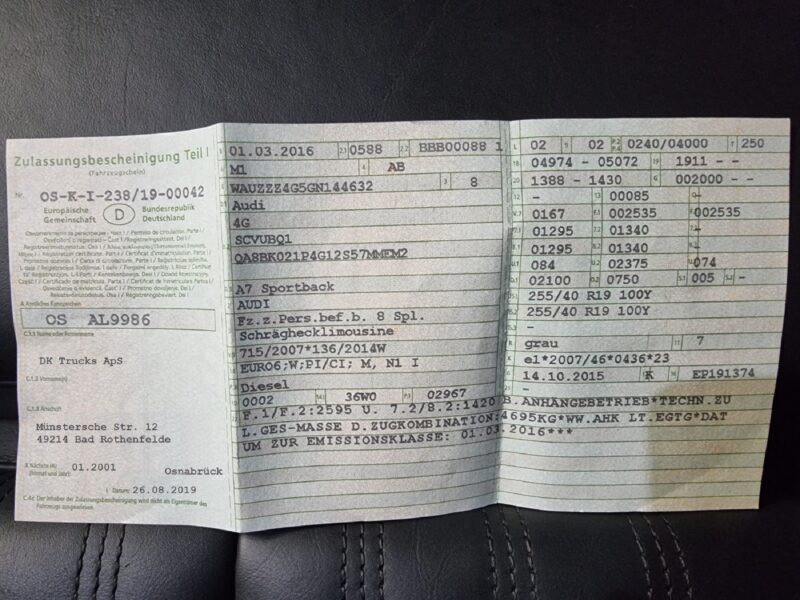 Zulassungsbescheinigung Teil I
(Fahrzeugschein)
Nr. OS-K-I-238/19-00042
Europäische Gemeinschaft D Bundesrepublik Deutschland
A Amtliches Kennzeichen
OS AL9986
C.1.1 Name oder Firmenname
DK Trucks ApS
C.1.2 Vorname(n)
C.1.3 Anschrift
Münstersche Str. 12
49214 Bad Rothenfelde
Nächste HU (Monat und Jahr) 01.2001
Osnabrück
Datum: 26.08.2019
C.4c Der Inhaber der Zulassungsbescheinigung wird nicht als Eigentümer des Fahrzeugs ausgewiesen.
B 01.03.2016 2.1 0588 2.2 BBB00088 1
M1 4 AB
WAUZZZ4G5GN144632 3 8
Audi
4G
SCVUBQ1
QASBK021P4G12S57MMEM2
A7 Sportback
AUDI
Fz.z.Pers.bef.b. 8 Spl.
Schräghecklimousine
715/2007*136/2014W
EURO6;W;PI/CI; M, N1 I
Diesel
0002 14.1 36W0 P.1 02967
F.1/F.2:2595 U. 7.2/8.2:1420 B.ANHANGEBETRIEB*TECHN.ZU
L.GES-MASSE D.ZUGKOMBINATION:4695KG*WW.AHK LT.EGTG*DAT
UM ZUR EMISSIONSKLASSE: 01.03.2016***
L 02 9 02 P.2 P.4 0240/04000 T 250
18 04974 - 05072 19 1911 - -
20 1388 - 1430 G 002000 - -
12 - 13 00085 Q -
V.7 0167 F.1 002535 F.2 002535
7.1 01295 7.2 01340 7.3 -
8.1 01295 8.2 01340 8.3 -
U.1 084 U.2 02375 U.3 074
O.1 02100 O.2 0750 S.1 005 S.2 -
255/40 R19 100Y
255/40 R19 100Y
-
grau 11 7
K e1*2007/46*0436*23
6 14.10.2015 K EP191374
-